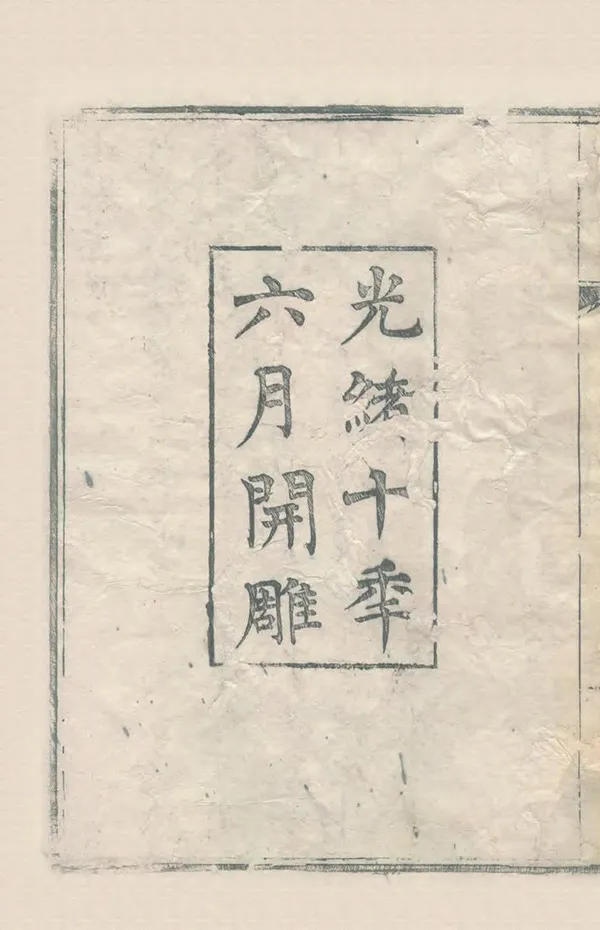 光緒十年
六月開雕